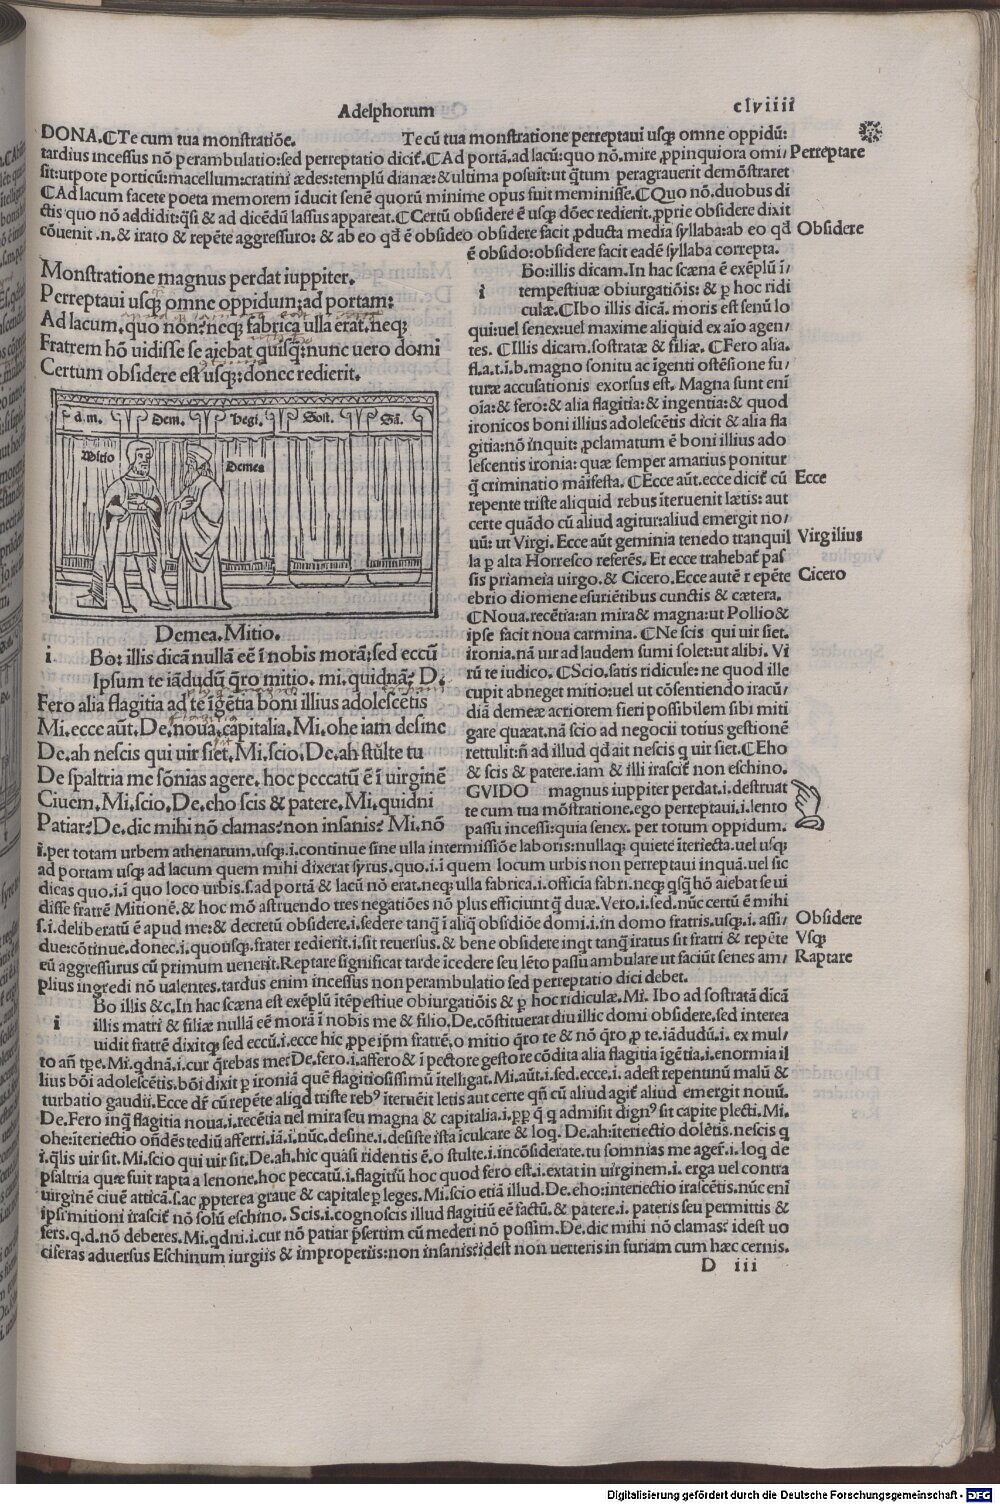 Adelphorum
clviiii
DONA.⁋Te cum tua monstratiōe. Te cū tua monstratione perreptaui usq; omne oppidū:
tardius incessus nō perambulatio:sed perreptatio dicit̄.⁋Ad portā.ad lacū:quo nō.mire ,ppinquiora omi/
Perreptare
sit:utpote porticū:macellum:cratini ædes:templū dianæ:& ultima posuit:ut q̄tum peragrauerit demōstraret
⁋Ad lacum facete poeta memorem īducit senē quorū minime opus fuit meminisse.⁋Quo nō.duobus di
ctis quo nō addidit:q̄si & ad dicēdū lassus appareat.⁋Certū obsidere ē usq; dōec redierit.,pprie obsidere dixit
cōuenit .n.& irato & repēte aggressuro: & ab eo qđ ē obsideo obsidere facit ,pducta media syllaba:ab eo qđ
Obsidere
ē obsido:obsidere facit eadē syllaba correpta.
Monstratione magnus perdat iuppiter.
Perreptaui usq; omne oppidum:ad portam:
Ad lacum.quo non?neq; fabrica ulla erat.neq;
Fratrem hō uidisse se aiebat quisq̄:nunc uero domi
Certum obsidere est usq;:donec redierit.
d.m. Dem. Hegi. Sost. Sā.
Mitio
Demea
Demea.Mitio.
i. Bo: illis dicā nullā eē ī nobis morā:sed eccū
Ipsum te iādudū q̄ro mitio. mi.quidnā? D.
Fero alia flagitia ad te īgētia boni illius adolescētis
Mi.ecce aūt.De.noua.capitalia.Mi.ohe iam desine
De.ah nescis qui uir siet.Mi.scio.De.ah stūlte tu
De psaltria me sōnias agere.hoc peccatū ē ī uirginē
Ciuem.Mi.scio.De.eho scis & patere.Mi.quidni
Patiar?De.dic mihi nō clamas?non insanis? Mi.nō
Bo:illis dicam.In hac scæna ē exēplū ī/
i tempestiuæ obiurgatiōis: & p hoc ridi
culæ.⁋Ibo illis dicā. moris est senū lo
qui:uel senex:uel maxime aliquid ex aīo agen/
tes. ⁋Illis dicam.sostratæ & filiæ. ⁋Fero alia.
fl.a.t.ī.b.magno sonitu ac īgenti ostēsione fu/
turæ accusationis exorsus est. Magna sunt enī
oīa:& fero:& alia flagitia:& ingentia:& quod
ironicos boni illius adolescētis dicit & alia fla
gitia:nō inquit: ,pclamatum ē boni illius ado
lescentis ironia: quæ semper amarius ponitur
q̄ criminatio māifesta. ⁋Ecce aūt.ecce dicit̄ cū
Ecce
repente triste aliquid rebus īteruenit lætis: aut
certe quādo cū aliud agitur:aliud emergit no/
uū: ut Virgi. Ecce aūt geminia tenedo tranquil
Virgilius
la p alta Horresco referēs. Et ecce trahebat̄ pas
sis priameia uirgo.& Cicero.Ecce autē r epēte
Cicero
ebrio diomene esuriētibus cunctis & cætera.
⁋Noua.recētia:an mira& magna:ut Pollio&
ipse facit noua carmina. ⁋Ne scis qui uir siet.
ironia.nā uir ad laudem sumi solet:ut alibi. Vi
rū te iudico. ⁋Scio.satis ridicule: ne quod ille
cupit abneget mitio:uel ut cōsentiendo iracū/
diā demeæ acriorem fieri possibilem sibi miti
gare quærat.nā scio ad negocii totius gestionē
rettulit:n̄ ad illud qđait nescis q uir siet.⁋Eho
& scis & patere.iam & illi irascit̄ non eschino.
GVIDO magnus iuppiter perdat.i.destruat
te cum tua mōstratione.ego perreptaui.i.lento
passu incessi:quia senex. per totum oppidum.
i.per totam urbem athenarum.usq;.i.continue sine ulla intermissiōe laboris:nullaq; quietē īteriecta.uel usq;
ad portam usq; ad lacum quem mihi dixerat syrus.quo.i.ī quem locum urbis non perreptaui inquā.uel sic
dicas quo.i.ī quo loco urbis.s.ad portā & lacū nō erat.neq; ulla fabrica.i.officia fabri.neq; q̄sq̄ hō aiebat se ui
disse fratrē Mitionē.& hoc mō astruendo tres negatiōes nō plus efficiunt q̄ duæ.Vero.i.sed.nūc certū ē mihi
s.i.deliberatū ē apud me:& decretū obsidere.i.sedere tanq̄ ī aliq̄ obsidiōe domi.i.in domo fratris.usq;.i.assi/
Obsidere
due:cōtinue.donec.i.quousq;.frater redierit.i.sit reuersus.& bene obsidere inqt tanq̄ iratus sit fratri & repēte
Vsq;
eū aggressurus cū primum uenerit.Reptare significat tarde īcedere seu lēto passu ambulare ut faciūt senes am/
Raptare
plius ingredi nō ualentes.tardus enim incessus non perambulatio sed perreptatio dici debet.
Bo illis &c.In hac scæna est exēplū ītēpestiue obiurgatiōis & p hoc ridiculæ.Mi. Ibo ad sostratā dicā
i illis matri & filiæ nullā eē morā ī nobis me & filio.De.cōstituerat diu illic domi obsidere.sed interea
uidit fratrē dixitq; sed eccū.i.ecce hic ,ppe ip̄m fratrē.o mitio q̄ro te & nō q̄ro ,p te.iādudū.i. ex mul/
to an̄ tp̄e.Mi.qdnā.i.cur q̄rebas me?De.fero.i.affero & ī pectore gestore cōdita alia flagitia īgētia.i.enormia il
lius bōi adolescētis.bōi dixit p ironiā quē flagitiosissimū ītelligat.Mi.aūt.i.sed.ecce.i. adest repentinū malū &
turbatio gaudii.Ecce dr̄ cū repēte aliqd triste reb⁹ īteruēit letis aut certe qn̄ cū aliud agit̄ aliud emergit nouū.
De.Fero inq̄ flagitia noua.i.recētia uel mira seu magna & capitalia.i.,pp q̄ q admisit dign⁹ sit capite plecti.Mi.
ohe:īteriectio ondēs tediū afferri.iā.i.nūc.desine.i.desiste ista īculcare & loq. De.ah:īteriectio dolētis.nescis q
i.q̄lis uir sit.Mi.scio qui uir sit.De.ah.hic quasi ridentis ē.o stulte.i.incōsiderate.tu somnias me ager̄.i. loq de
psaltria quæ fuit rapta a lenone.hoc peccatū.i.flagitiū hoc quod fero est.i.extat in uirginem.i. erga uel contra
uirginē ciuē atticā.s.ac ,ppterea graue & capitale p leges.Mi.scio etiā illud.De.eho:interiectio irascētis.nūc enī
ipsi mitioni irascit̄ nō solū eschino. Scis.i.cognoscis illud flagitiū eē factū.& patere.i. pateris seu permittis &
fers.q.d.nō deberes.Mi.qdni.i.cur nō patiar p̄sertim cū mederi nō possim.De.dic mihi nō clamas? idest uo
ciferas aduersus Eschinum iurgiis & improperiis:non insanis?idest non uerteris in furiam cum hæc cernis.
D iii
Digitalisierung gefördert durch die Deutsche Forschungsgemeinschaft - DFG